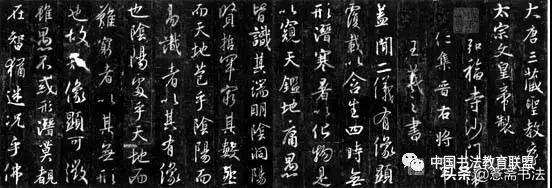 大唐三藏聖教序
太宗文皇帝製
弘福寺沙門
仁集晉右將
王羲之書
蓋聞二儀有像顯
覆載以含生四時無
形潛寒暑以化物是
以窺天鑑地庸愚
皆識其端明陰洞陽
賢哲罕窮其數然
而天地苞乎陰陽而
易識者以其有像
也陰陽處乎天地而
難窮者以其無形
也故知像顯可徵
雖愚不惑形潛莫覩
在智猶迷況乎佛
中国书法教育联盟
头条 @薏斋书法